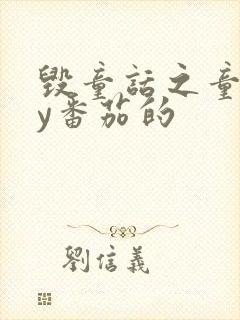 毁童话之童
y番茄的
劉信義